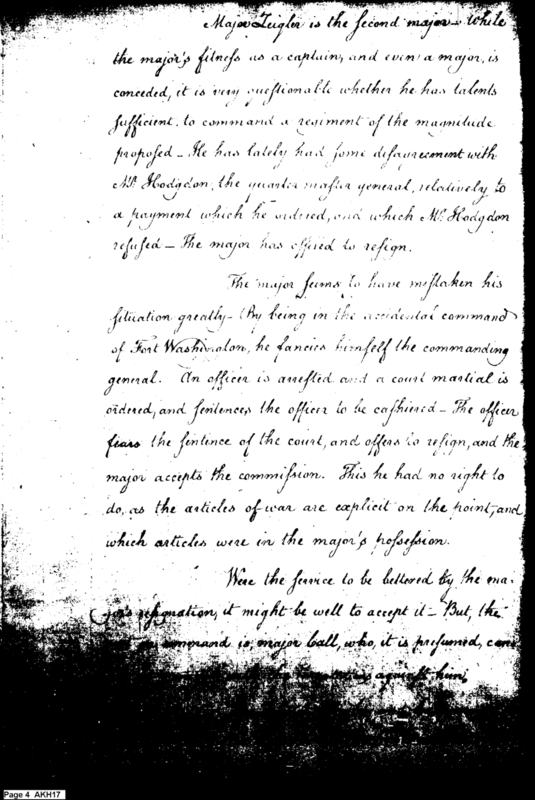 Major Zeigler is the second major – While
the major's fitness as a captain, and even a major, is
conceded, it is very questionable whether he has talents
sufficient, to command a regiment of the magnitude
proposed – He has lately had some disagreement with
Mr. Hodgdon, the quarter master general, relatively to
a payment which he ordered, and which Mr. Hodgdon
refused – The major has offered to resign.
The major seems to have mistaken his
situation greatly – By being in the accidental command
of Fort Washington, he fancies himself the commanding
general. An officer is arrested and a court martial is
ordered, and sentences the officer to be cashiered – The officer
fears the sentence of the court, and offers to resign, and the
major accepts the commission. This he had no right to
do, as the articles of war are explicit on the point, and
which articles were in the major's possession.
Were the service to be bettered by the ma-
jor's resignation, it might be well to accept it – But, the
command is, major Call, who, it is presumed,
against him;
Page 4 AKH17